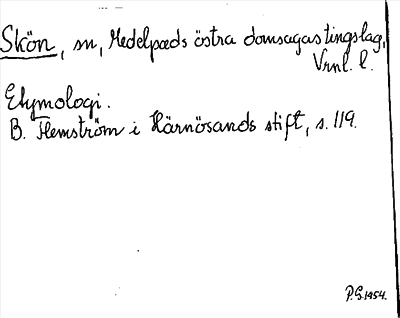 Skön, sn, Medelpads östra domsagas tingslag,
Vrnl. l.
Etymologi.
B. Flemström i Härnösands stift, s. 119.
P.G. 1954.